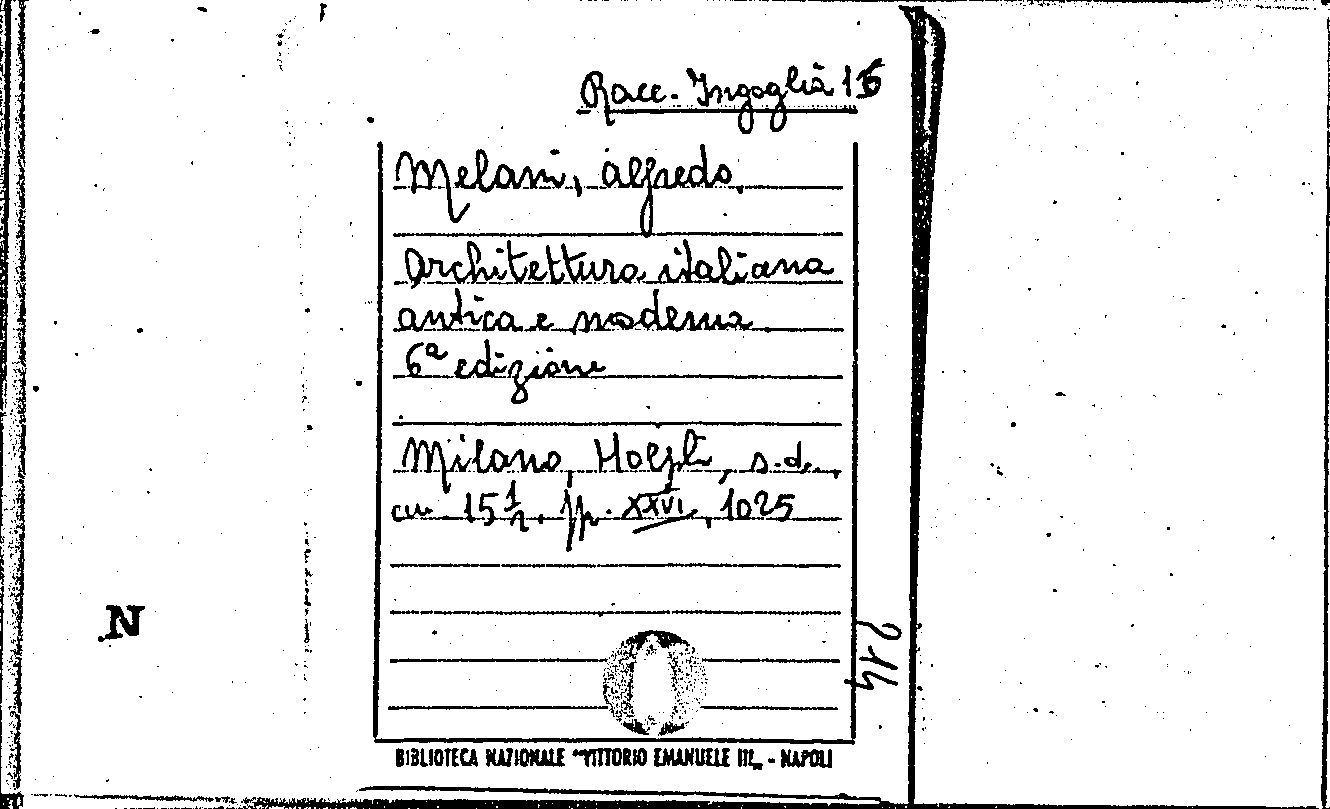 Racc. Ingoglia 15
Melani, Alfredo.
Architettura italiana
antica e moderna.
6ª edizione
Milano, Hoepli, s.d.,
cm 15½. pp. XXVI, 1025
N
214
BIBLIOTECA NAZIONALE "VITTORIO EMANUELE III„ - NAPOLI